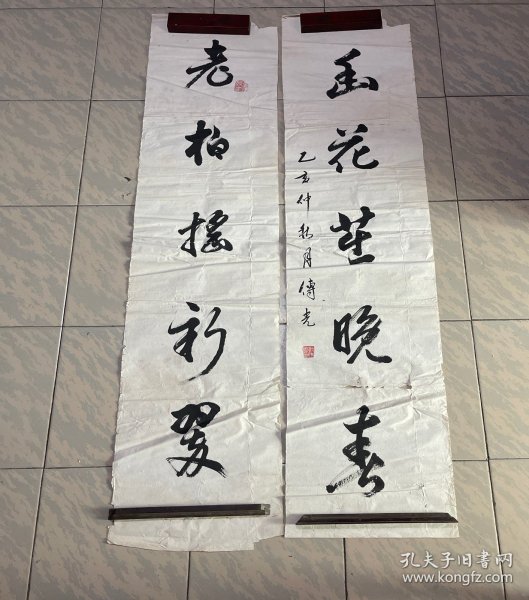 老柏搖新翠
幽花茁晚春
乙亥仲秋月傅光
孔夫子旧书网
www.kongfz.com